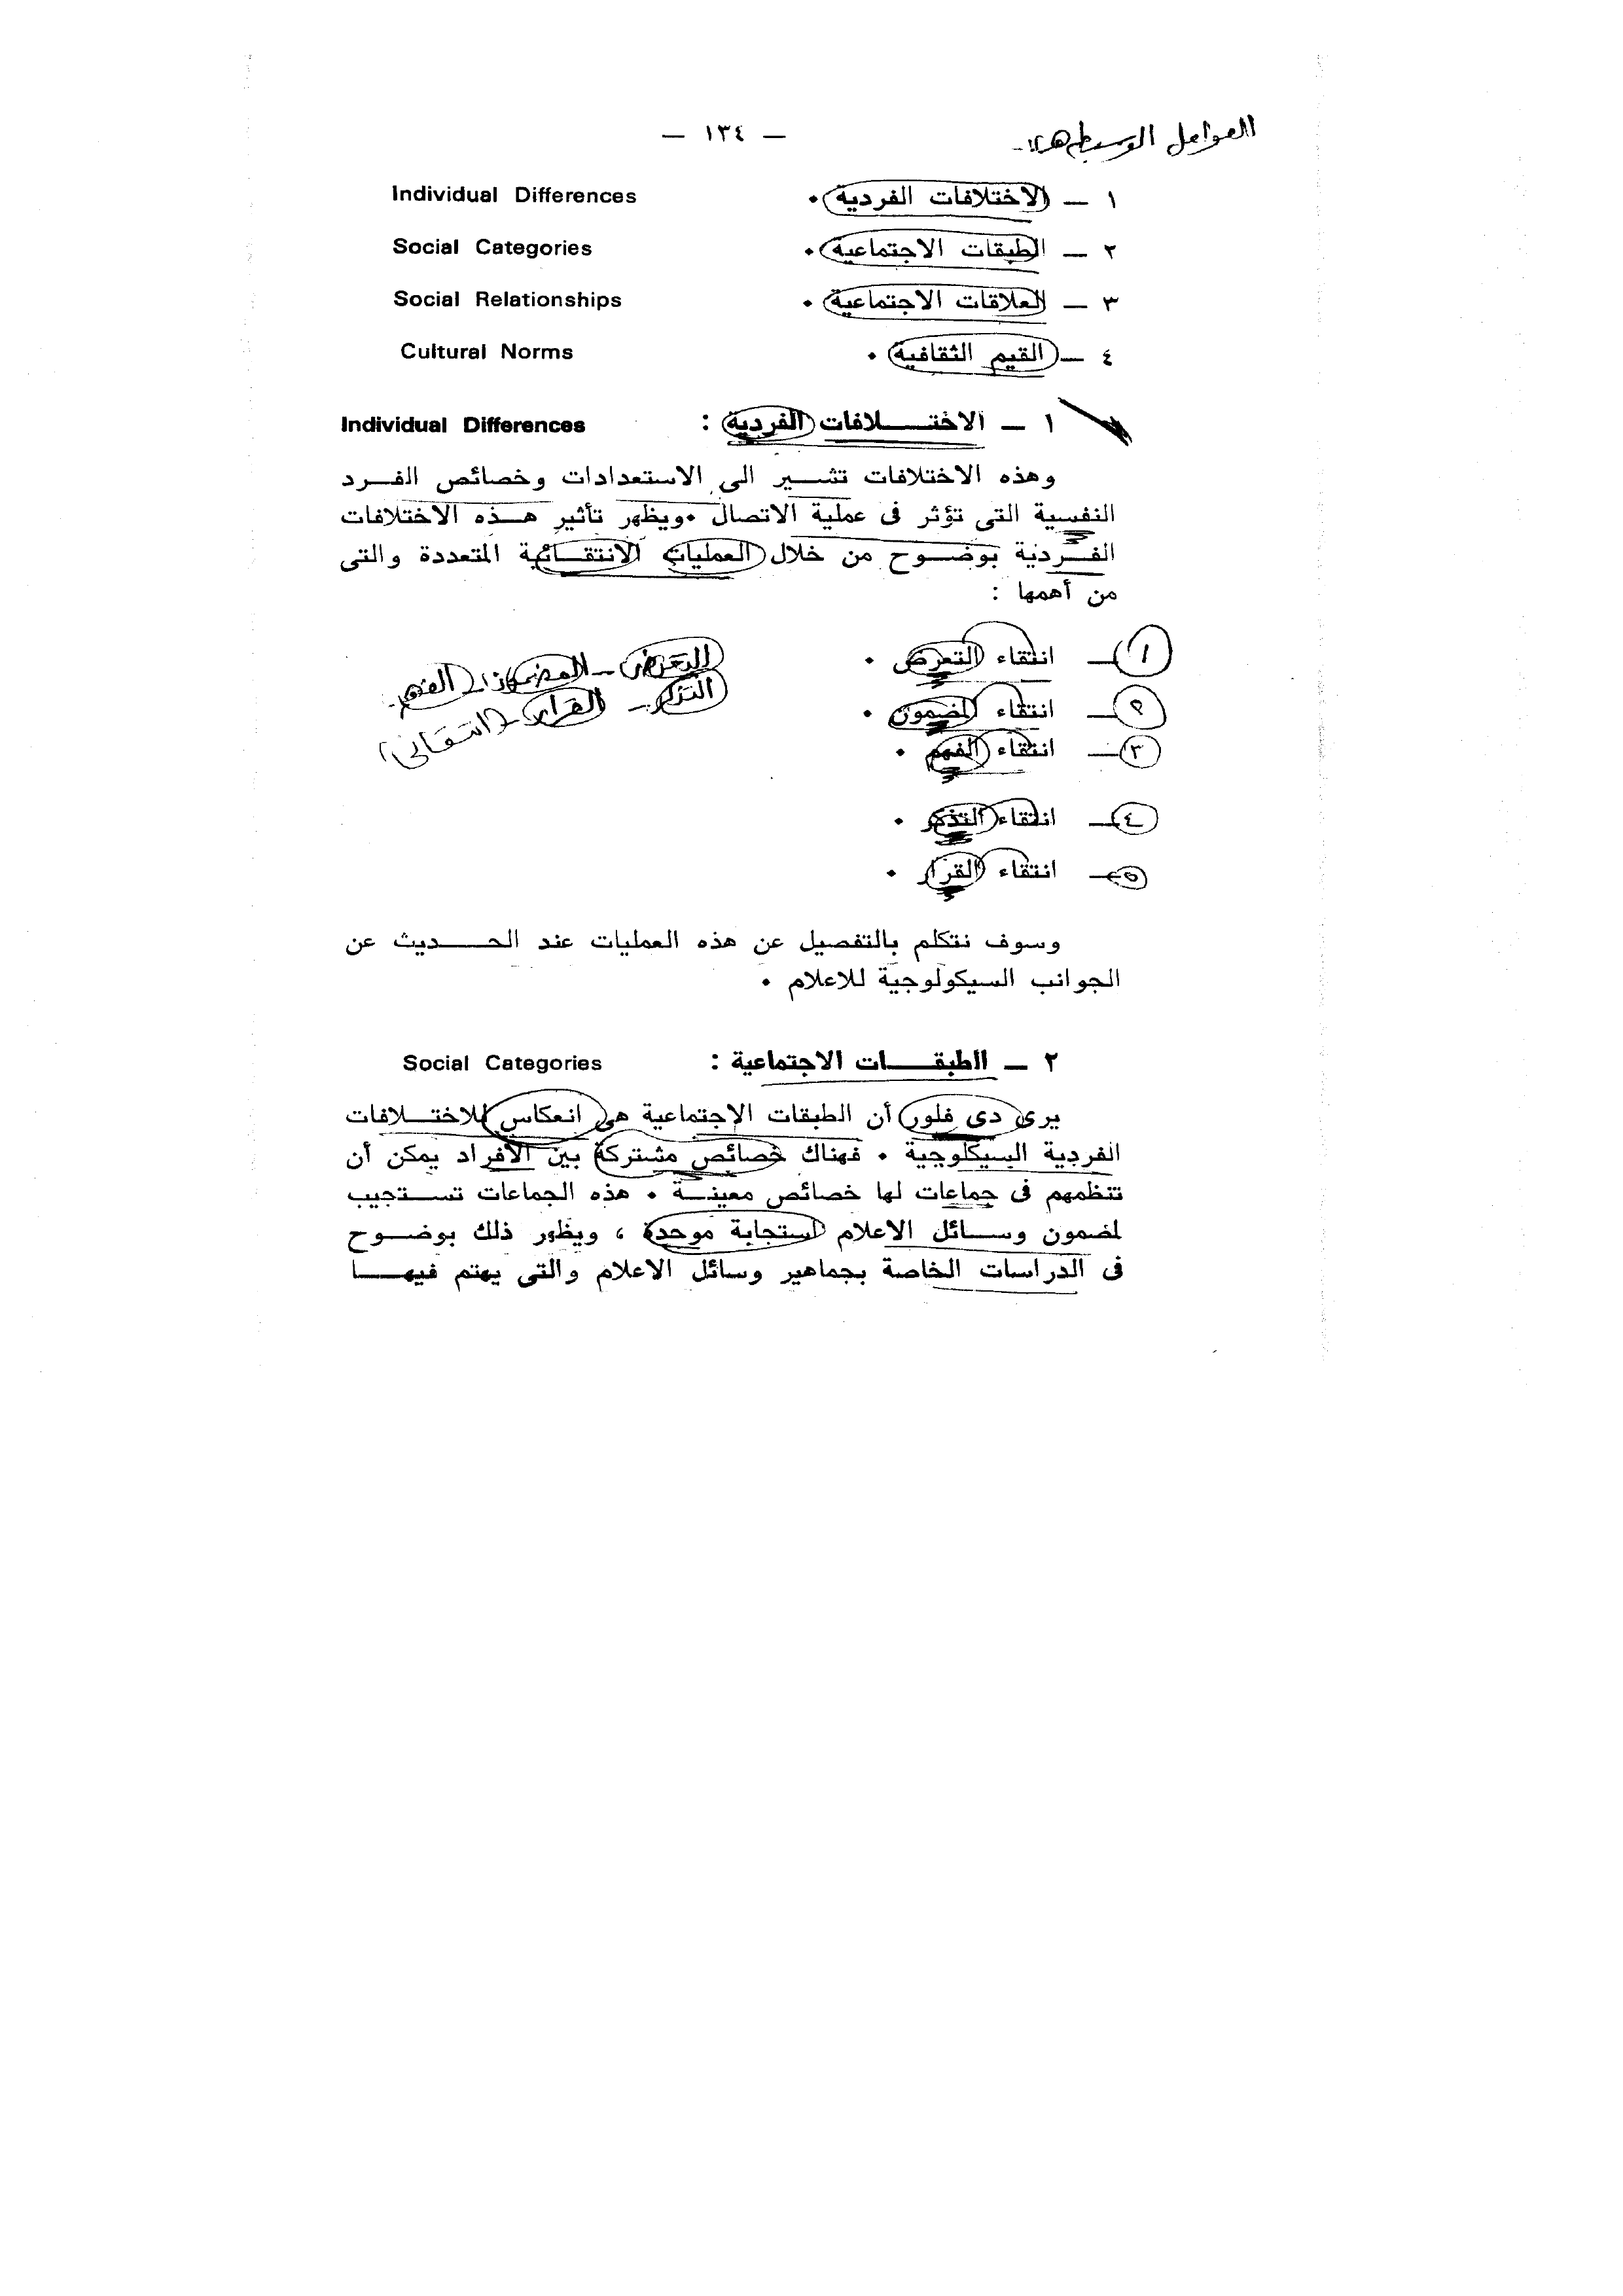 العوامل الوسيطة هي :-
— ١٣٤ —
١ — الاختلافات الفردية . Individual Differences
٢ — الطبقات الاجتماعية . Social Categories
٣ — العلاقات الاجتماعية . Social Relationships
٤ — القيم الثقافية . Cultural Norms
١ — الاختـــــلافات الفردية : Individual Differences
وهذه الاختلافات تشـــير الى الاستعدادات وخصائص الفـــرد
النفسية التى تؤثر فى عملية الاتصال . ويظهر تأثير هـــذه الاختلافات
الفـــردية بوضـــوح من خلال العمليات الانتقـــائية المتعددة والتى
من أهمها :
١ — انتقاء التعرض .
٢ — انتقاء المضمون .
٣ — انتقاء الفهم .
٤ — انتقاء التذكر .
٥ — انتقاء القرار .
التعرض - المضمون - الفهم -
التذكر - القرار - (انتقائي)
وسوف نتكلم بالتفصيل عن هذه العمليات عند الحـــديث عن
الجوانب السيكولوجية للاعلام .
٢ — الطبقـــات الاجتماعية : Social Categories
يرى دى فلور أن الطبقات الاجتماعية هى انعكاس للاختـــلافات
الفردية السيكلوجية . فهناك خصائص مشتركة بين الأفراد يمكن أن
تنظمهم فى جماعات لها خصائص معينـــة . هذه الجماعات تســـتجيب
لمضمون وســـائل الاعلام استجابة موحدة ، ويظهر ذلك بوضـــوح
فى الدراسات الخاصة بجماهير وسائل الاعلام والتى يهتم فيهـــا